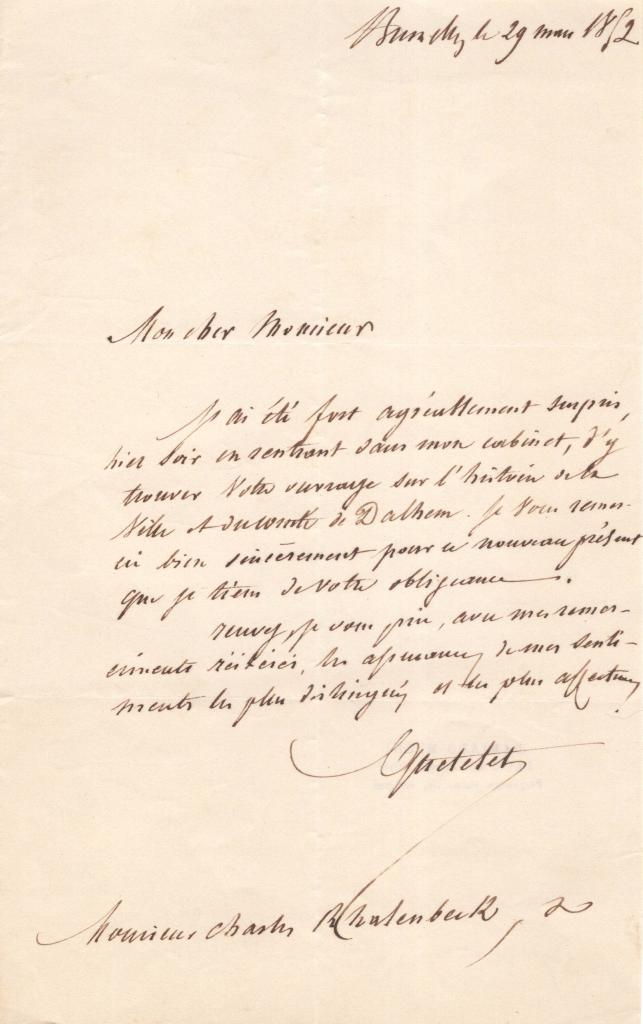 Bruxelles, le 29 mars 1852
Mon cher Monsieur
J'ai été fort agréablement surpris,
hier soir en rentrant dans mon cabinet, d'y
trouver votre ouvrage sur l'histoire de la
Ville et du comté de Dalhem. Je vous remer-
cie bien sincèrement pour ce nouveau présent
que je tiens de votre obligeance.
recevez, je vous prie, avec mes remer-
ciments réitérés, les assurances de mes senti-
ments les plus distingués et les plus affectueux
Quetelet
Monsieur Charles Rahlenbeck,